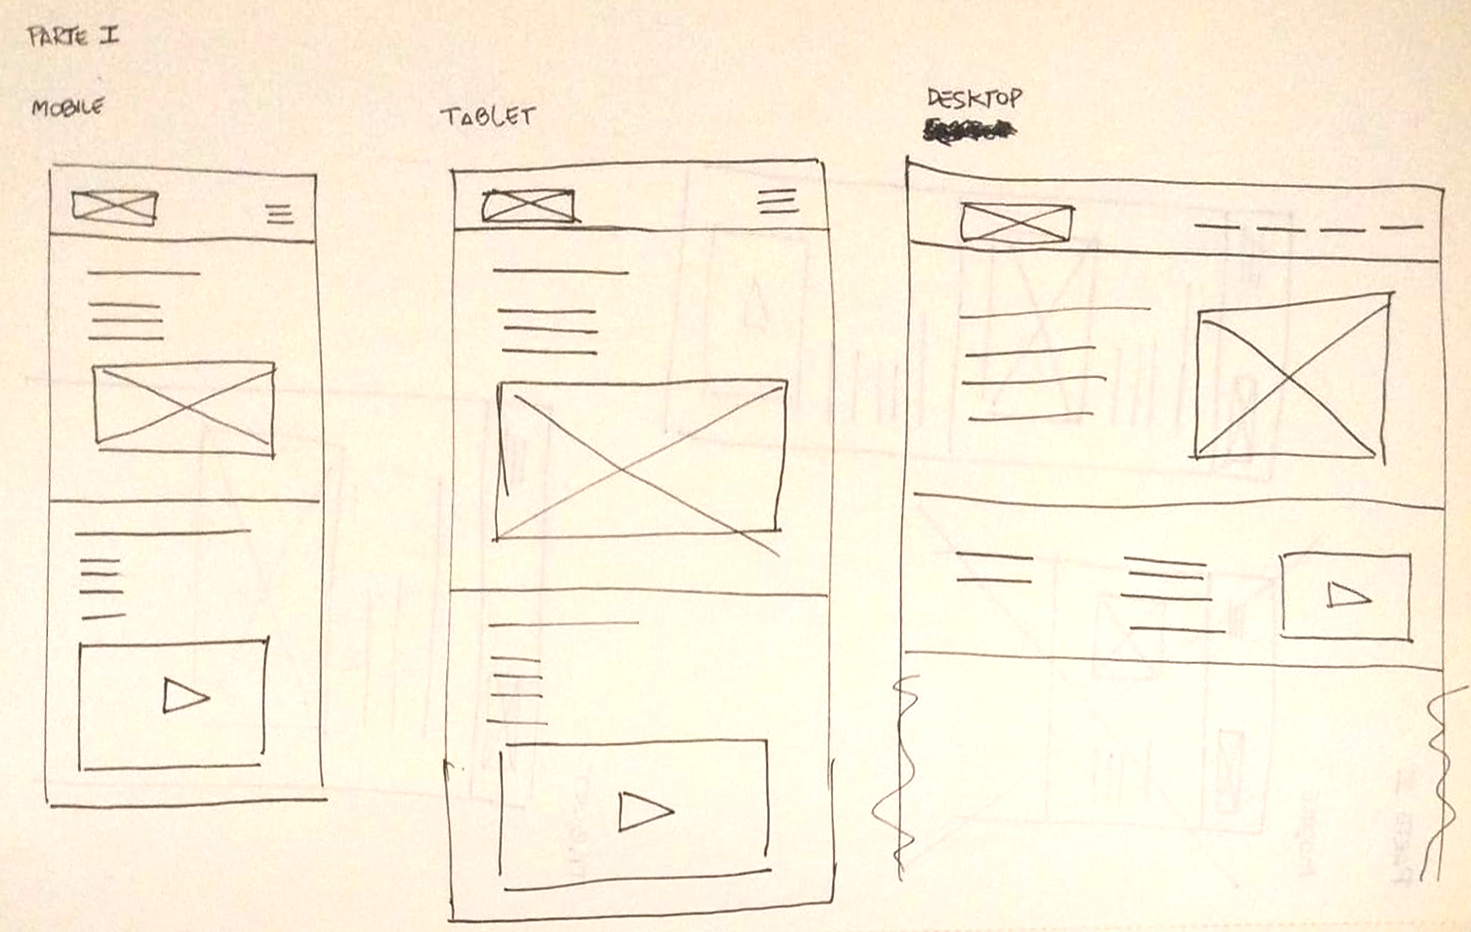 PARTE I
MOBILE
TABLET
DESKTOP